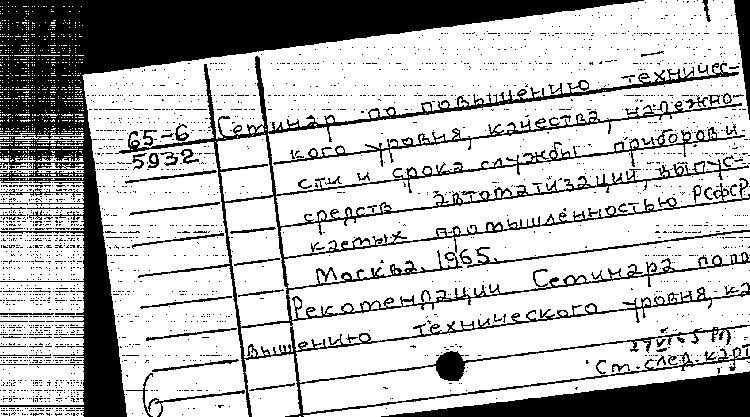 65-6
5932
Семинар по повышению техничес-
кого уровня, качества, надежно-
сти и срока службы приборов и
средств автоматизации, выпус-
каемых промышленностью РСФСР.
Москва. 1965.
Рекомендации Семинара по по
вышению технического уровня, ка
См. след. карт